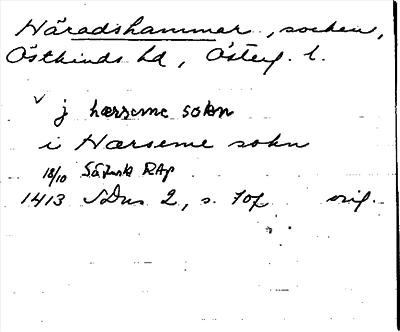 Häradshammar, socken,
Östkinds hd, Österg. l.
v j hærseme sokn
i Hærseme sokn
18/10 RAp
1413 SDns 2, s. 707 orig.